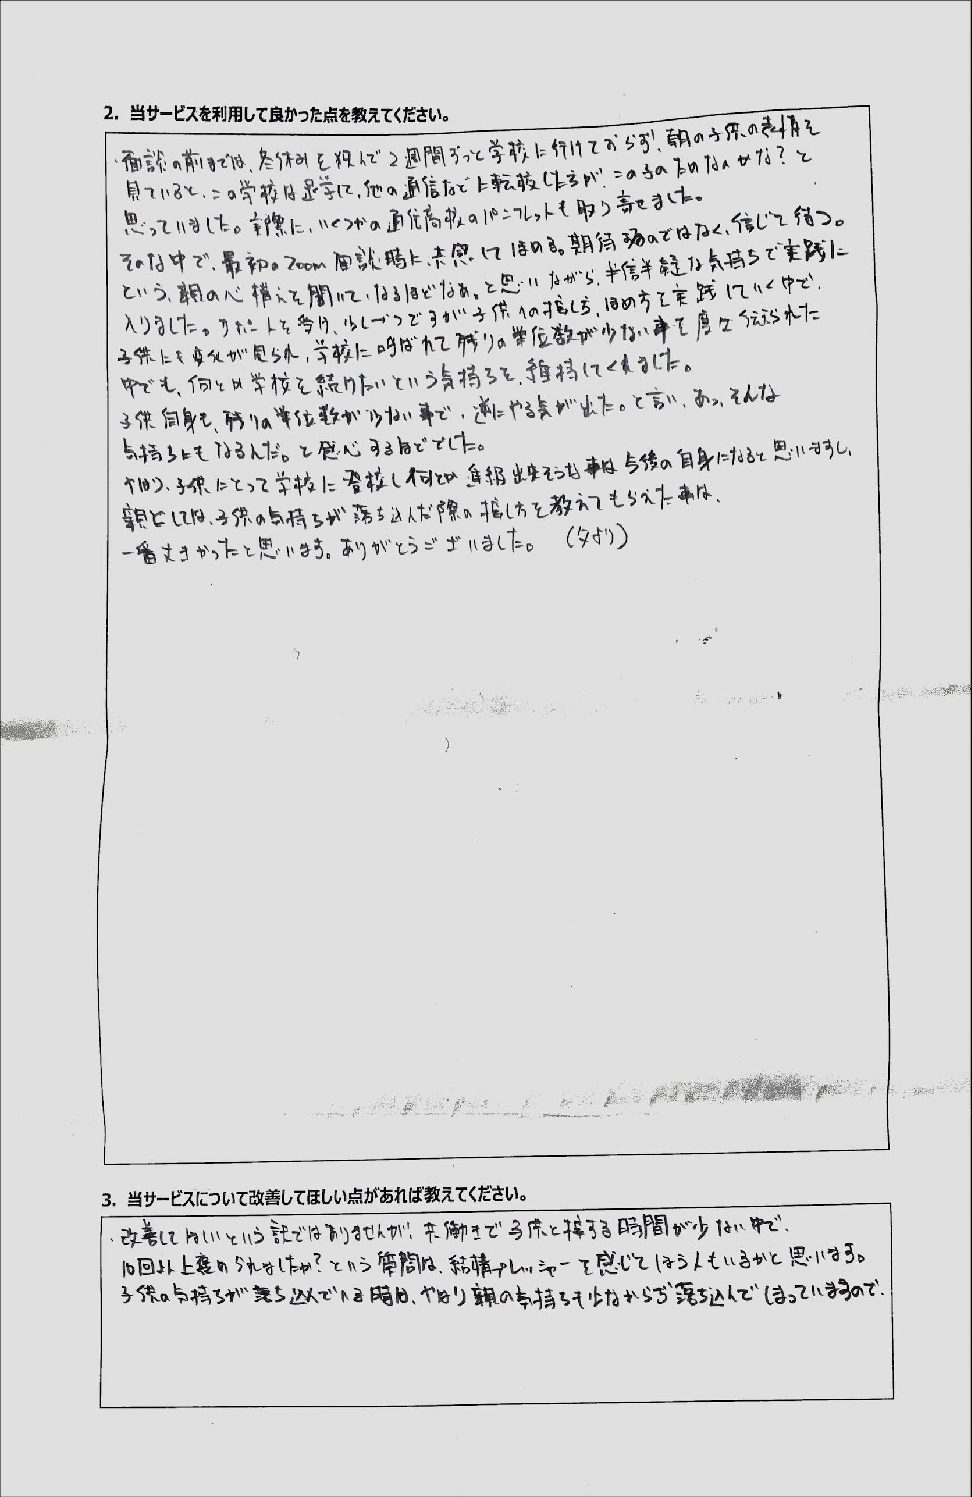 2. 当サービスを利用して良かった点を教えてください。
・面談の前までは、冬休みを挟んで2週間ずっと学校に行けておらず、朝の子供の表情を
見ていると、この学校は退学して、他の通信などに転校した方が、この子のためなのかな？と
思っていました。実際に、いくつかの通信高校のパンフレットも取り寄せました。
そんな中で、最初のZoom面談時に、共感してほめる。期待するのではなく、信じて待つ。
という、親の心構えを聞いて、なるほどなあ。と思いながら、半信半疑な気持ちで実践に
入りました。サポートを受け、少しづつですが子供への接し方、ほめ方を実践していく中で、
子供にも変化が見られ、学校に呼ばれて残りの単位数が少ない事を度々伝えられた
中でも、何とか学校を続けたいという気持ちを、維持してくれました。
子供自身も、残りの単位数が少ない事で、逆にやる気が出た。と言い、あっ、そんな
気持ちにもなるんだ。と感心するほどでした。
やはり、子供にとって学校に登校し何とか進級出来そうな事は今後の自身になると思いますし、
親としては、子供の気持ちが落ち込んだ際の接し方を教えてもらえた事は、
一番大きかったと思います。ありがとうございました。（父より）
3. 当サービスについて改善してほしい点があれば教えてください。
・改善してほしいという訳ではありませんが、共働きで子供と接する時間が少ない中で、
10回以上褒められましたか？という質問は、結構プレッシャーを感じてしまう人もいるかと思います。
子供の気持ちが落ち込んでいる時は、やはり親の気持ちも少なからず落ち込んでしまっていますので、